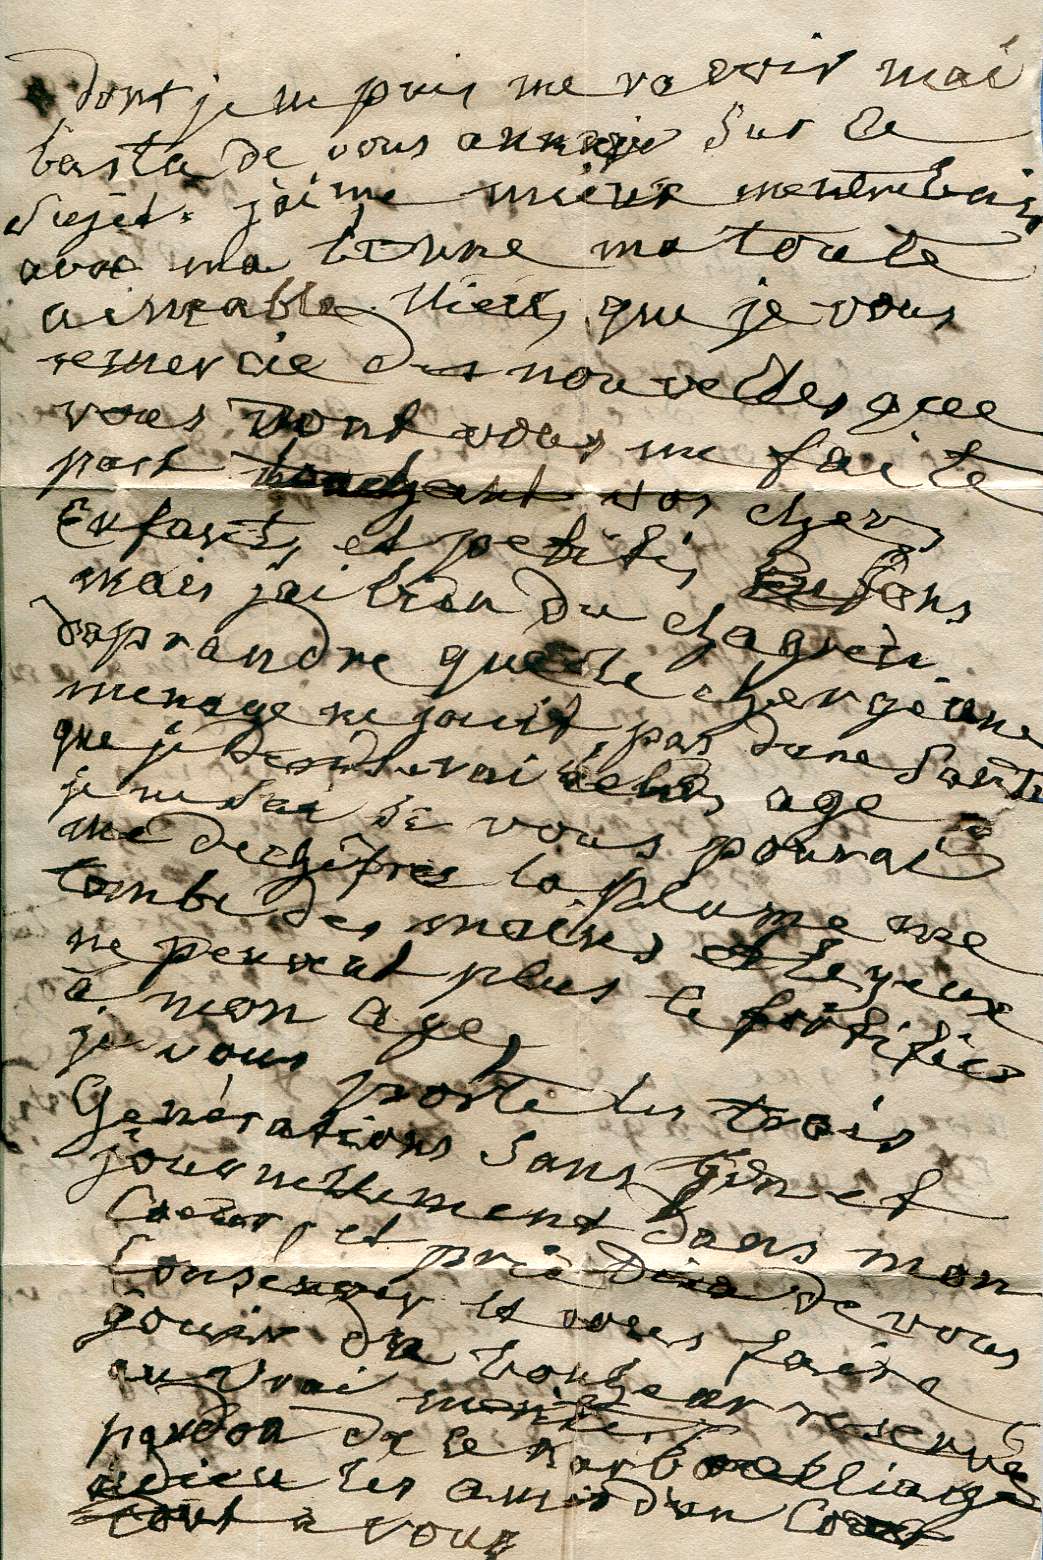 dont je me puis me ravoir mai
basta de vous annuije sur ce
sujet. j'aime mieux mentretenir
avec ma bonne ma toute
aimeable que je vous
remercie des nouvelles que
vous vous me faite
part touchant vos chers
Enfants, et petits Enfans
mais jai bien du chagrin
daprandre que le cher jeune
menage ne jouit pas dune Santé
que je desirerai a leurs age
je ne sai si vous pourai
me dechifrer la plume me
tombe des mains et les yeux
ne peuvent plus le fortifier
à mon age,
je vous porte les trois
Generations Sans fin et
journellement dans mon
Coeur, et prie Dieu de vous
Conserver et vous faire
jouir du bonheur reservé
au vrai merite,
pardon de ce barbouilliage
adieu les amis d'un Coeur
tout a vous